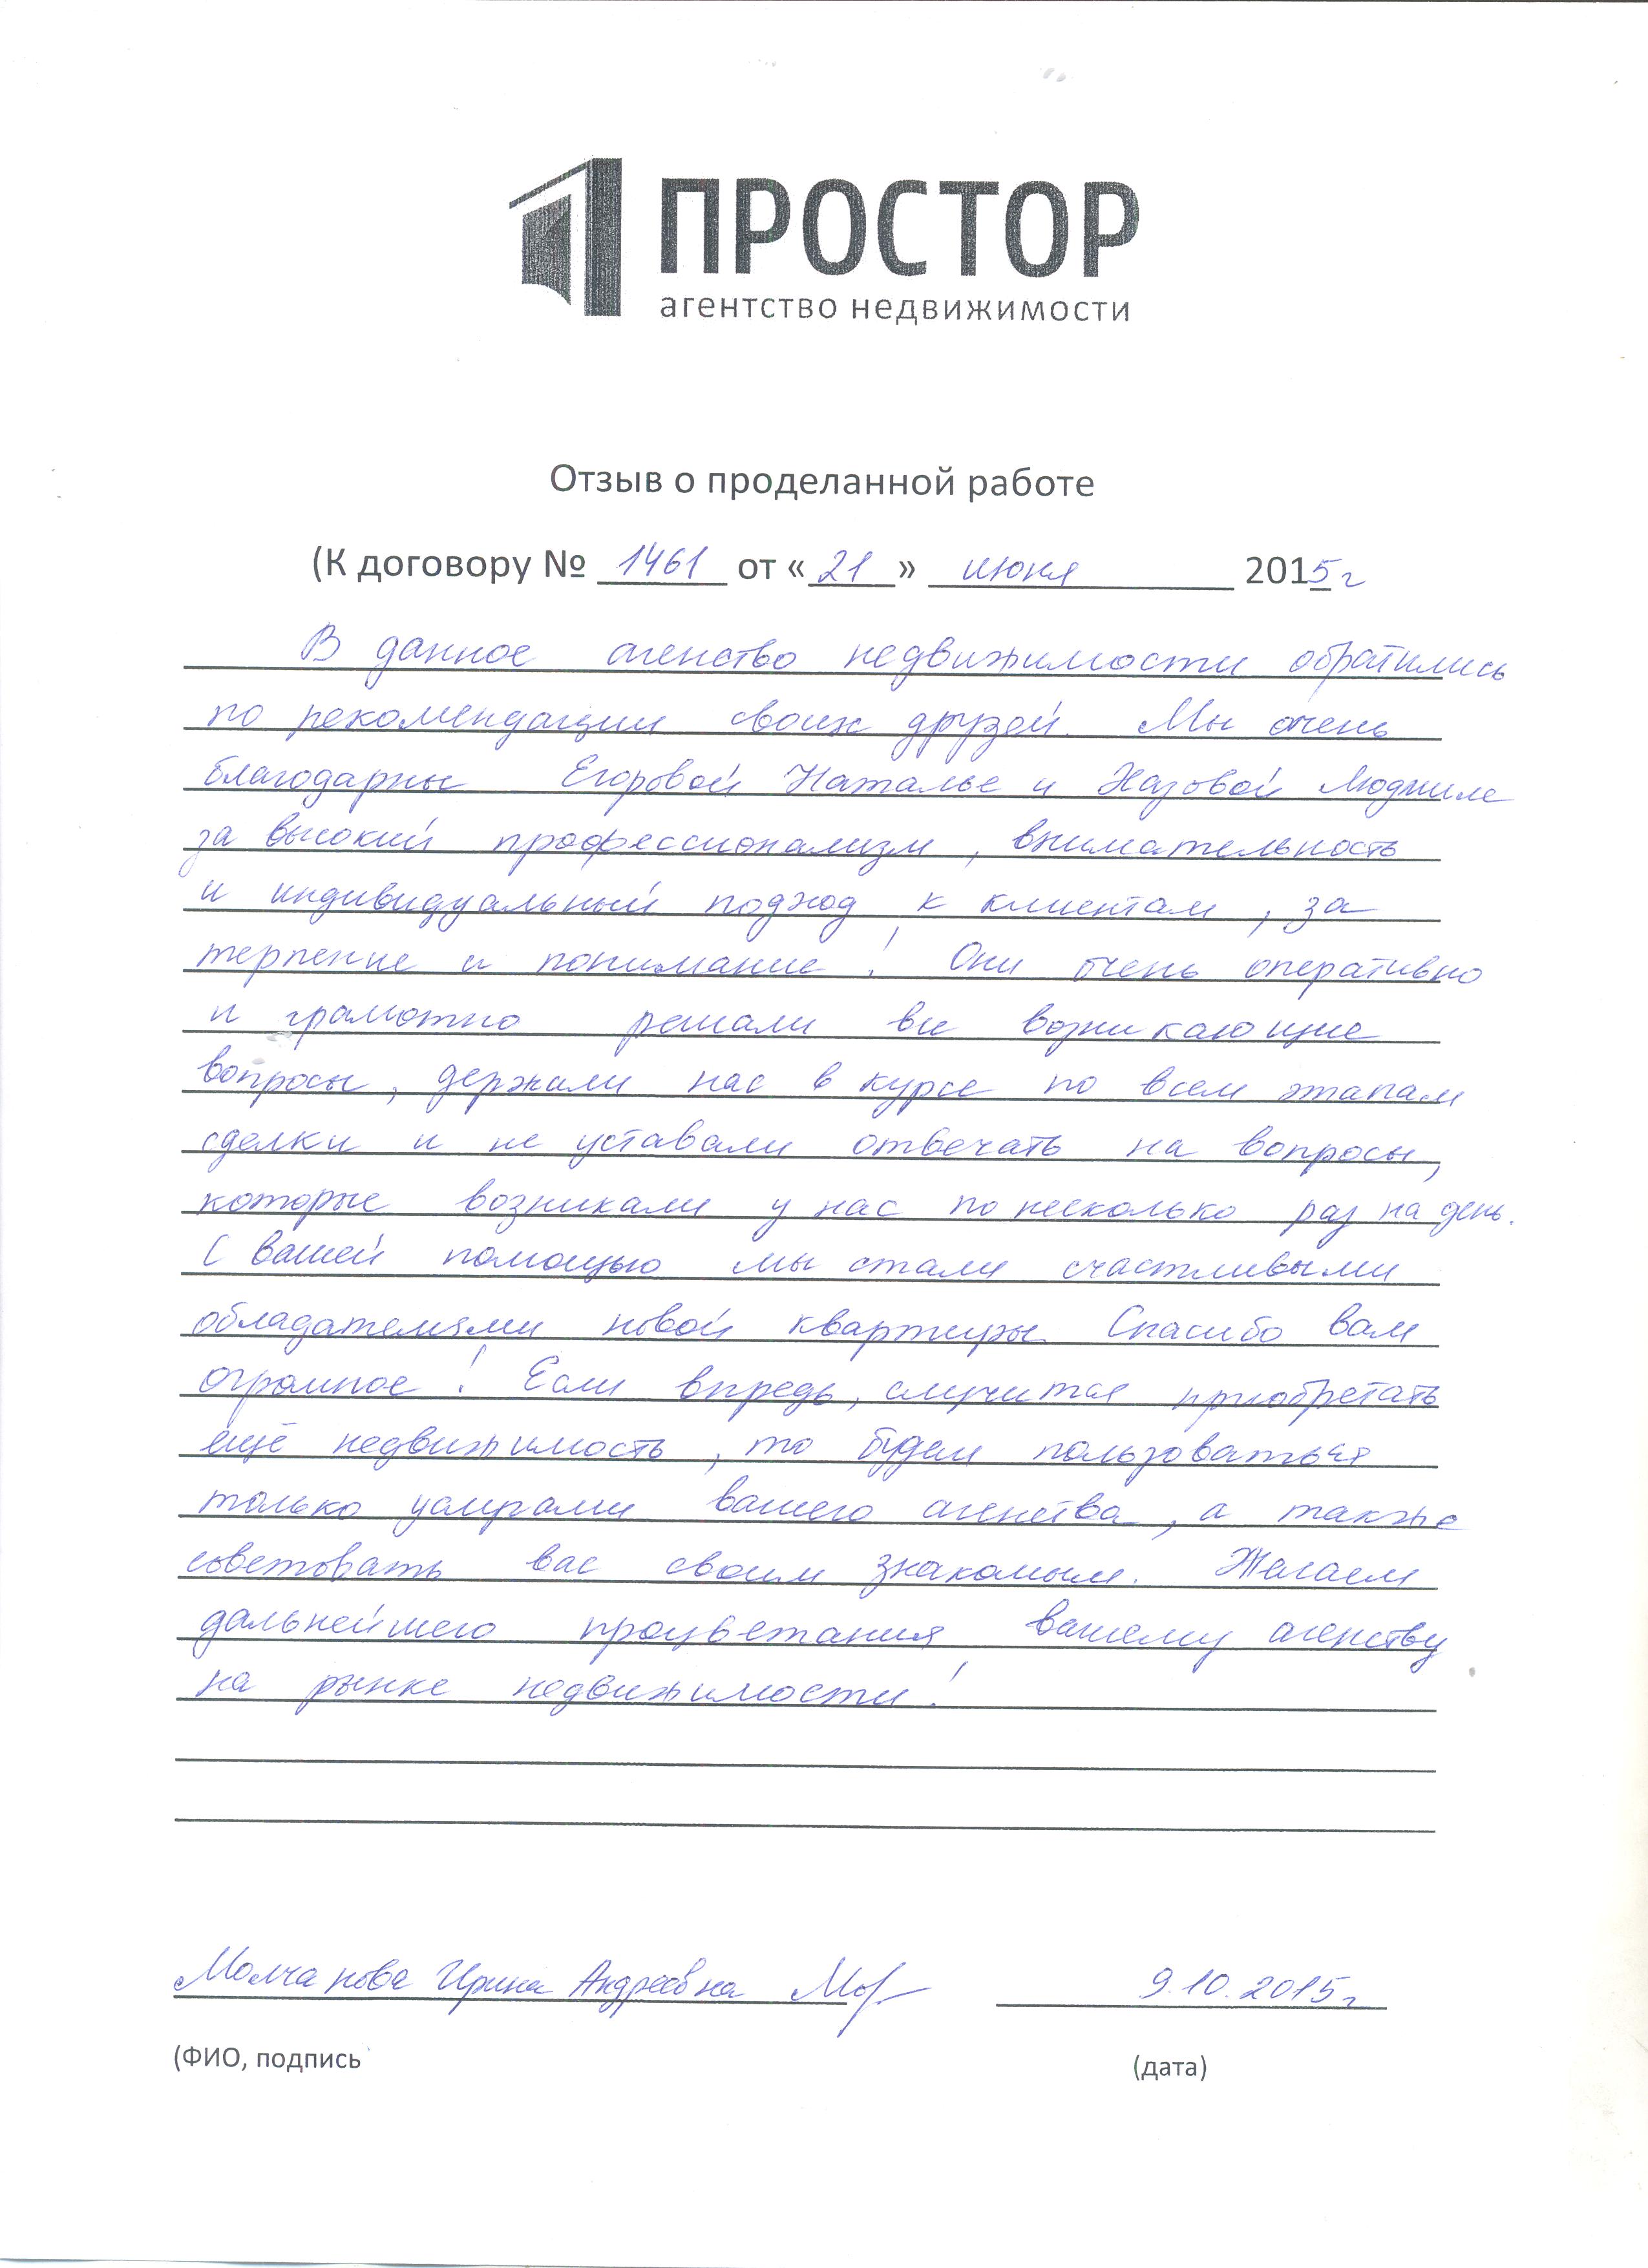 ПРОСТОР
агентство недвижимости
Отзыв о проделанной работе
(К договору № 1461 от «21» июня 2015г
В данное агенство недвижимости обратились
по рекомендации своих друзей. Мы очень
благодарны Егоровой Наталье и Назовой Людмиле
за высокий профессионализм, внимательность
и индивидуальный подход к клиентам, за
терпение и понимание! Они очень оперативно
и грамотно решали все возникающие
вопросы, держали нас в курсе по всем этапам
сделки и не уставали отвечать на вопросы,
которые возникали у нас по несколько раз на день.
С вашей помощью мы стали счастливыми
обладателями новой квартиры. Спасибо вам
огромное! Если впредь, случится приобретать
ещё недвижимость, то будем пользоваться
только услугами вашего агенства, а также
советовать вас своим знакомым. Желаем
дальнейшего процветания вашему агенству
на рынке недвижимости!
Молчанова Ирина Андреевна 9.10.2015г
(ФИО, подпись (дата)